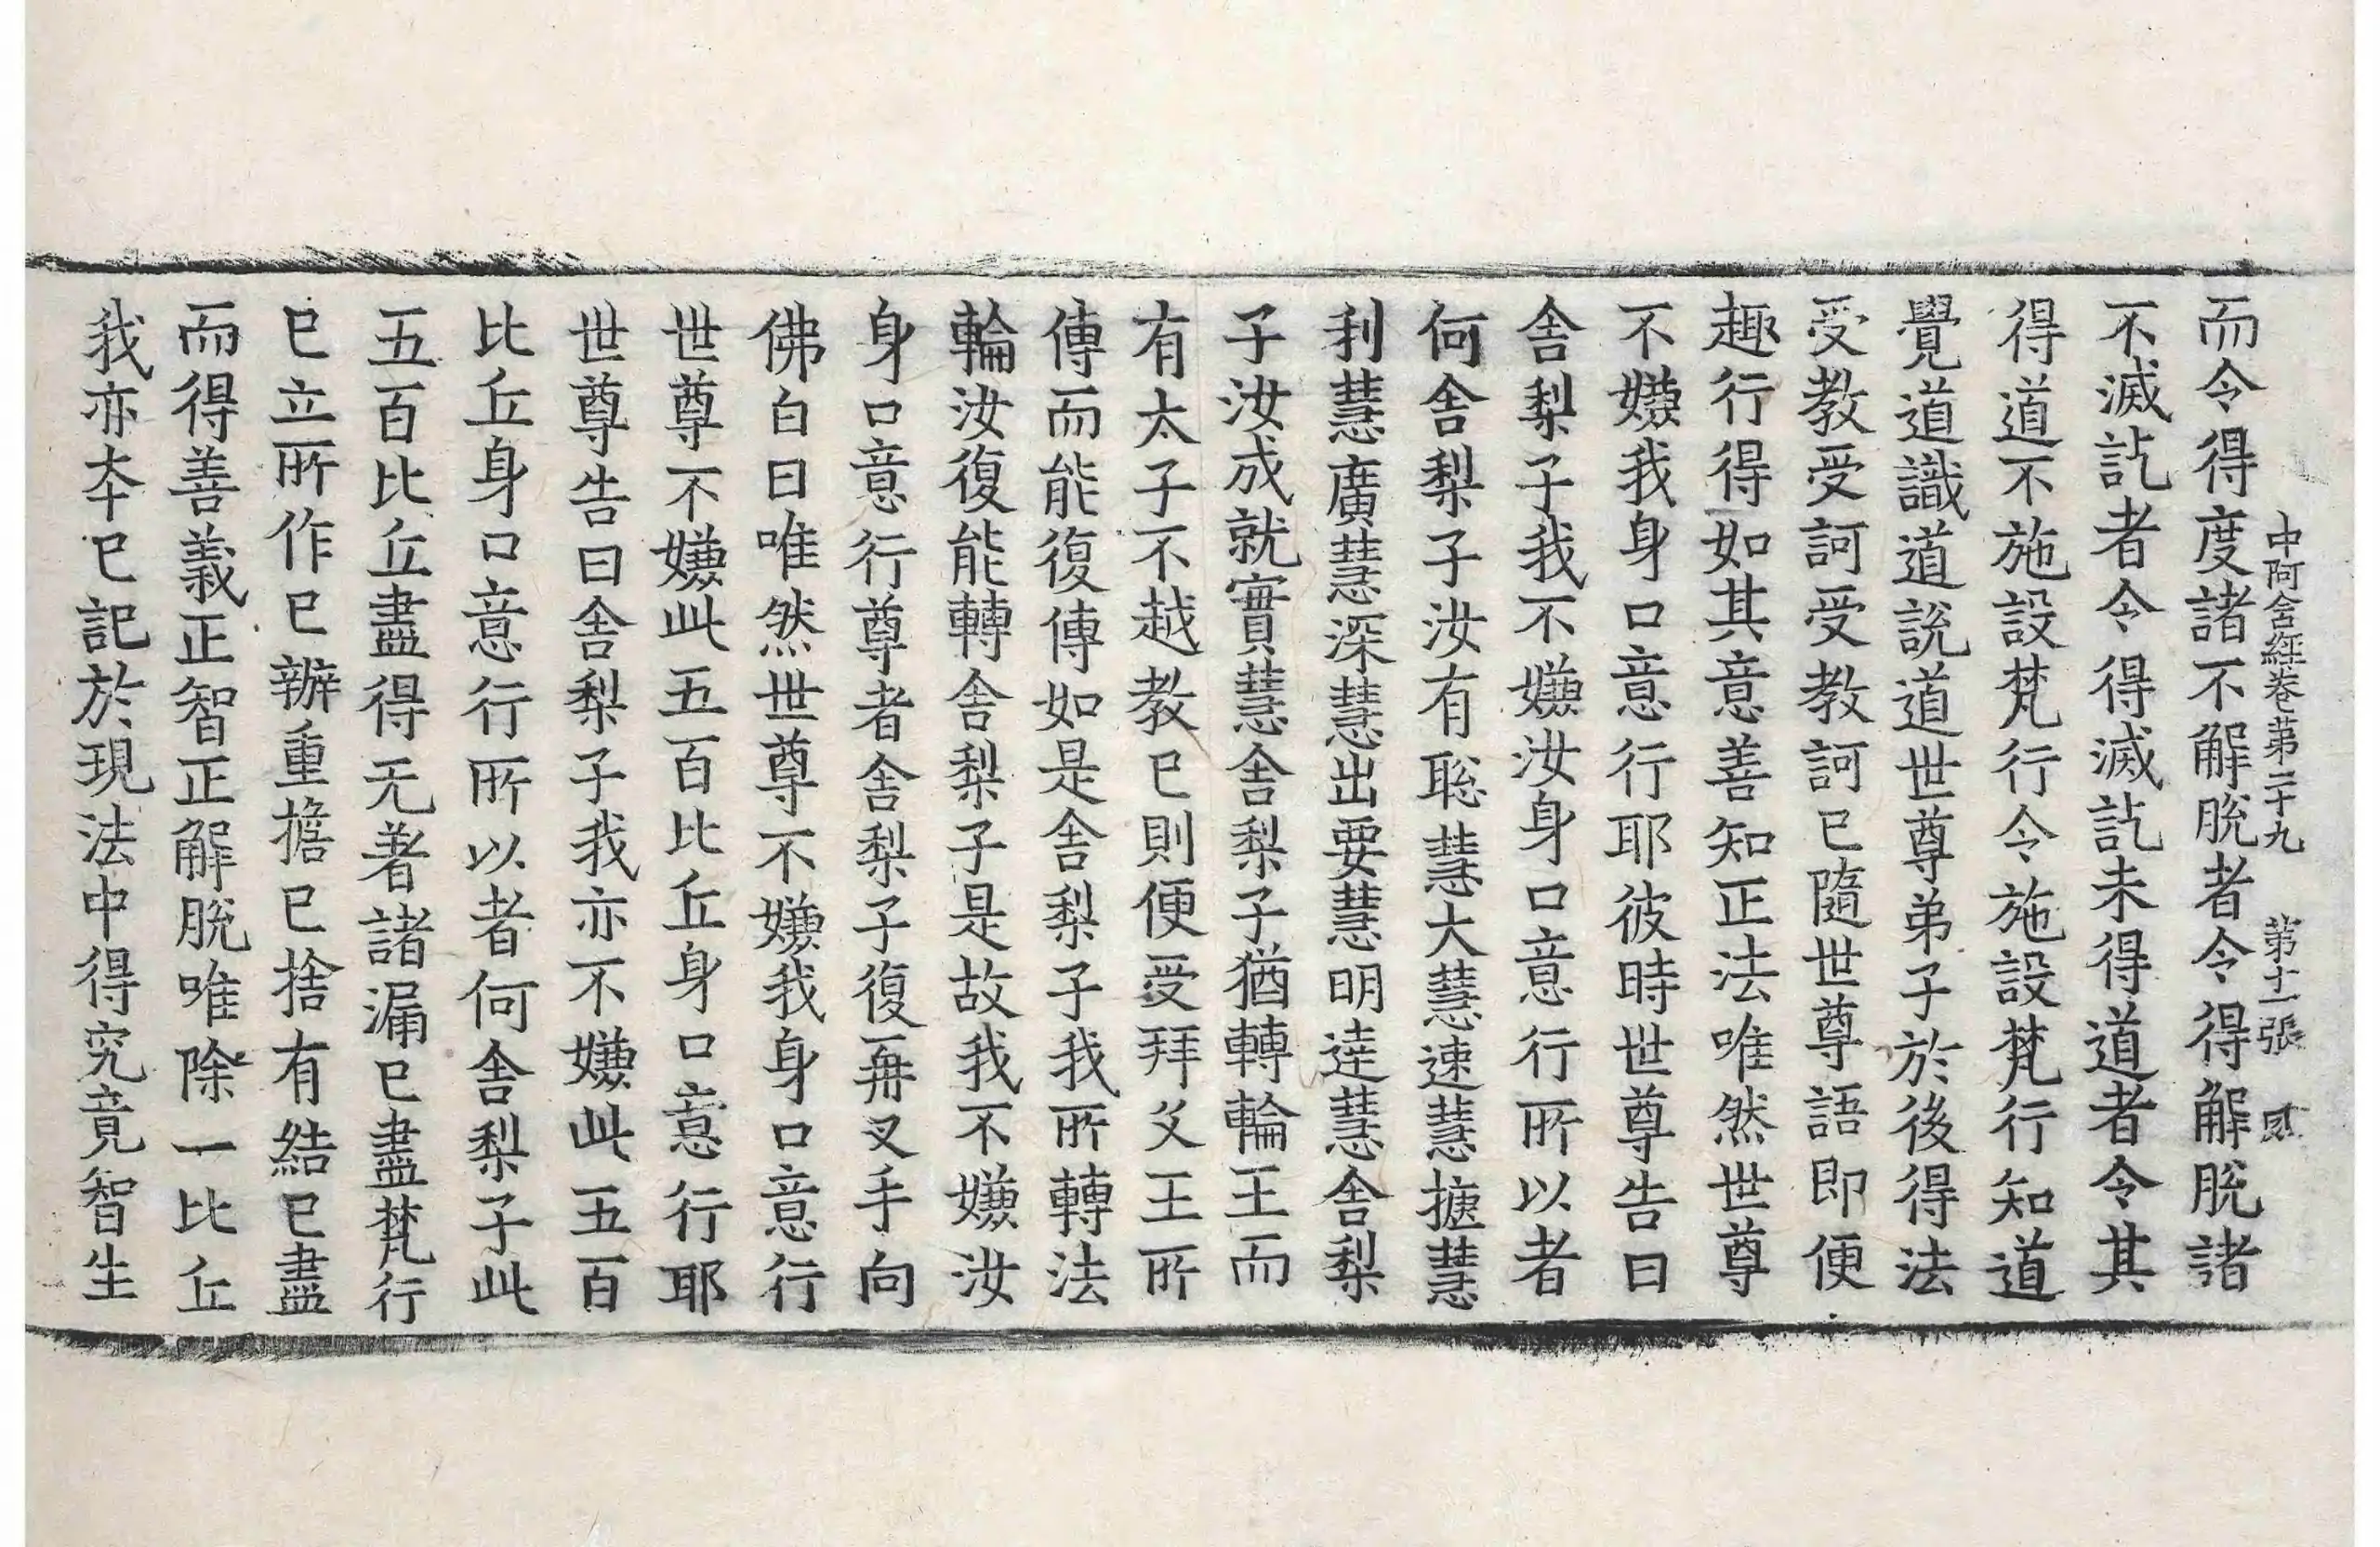 中阿含經卷第二十九　第十一張
而令得度諸不解脫者令得解脫諸
不滅訖者令得滅訖未得道者令其
得道不施設梵行令施設梵行知道
覺道識道說道世尊弟子於後得法
受教受訶受教訶已隨世尊語即便
趣行得如其意善知正法唯然世尊
不嫌我身口意行耶彼時世尊告曰
舍梨子我不嫌汝身口意行所以者
何舍梨子汝有聡慧大慧速慧揵慧
利慧廣慧深慧出要慧明逹慧舍梨
子汝成就實慧舍梨子猶轉輪王而
有太子不越教已則便受拜父王所
傳而能復傳如是舍梨子我所轉法
輪汝復能轉舍梨子是故我不嫌汝
身口意行尊者舍梨子復再叉手向
佛白曰唯然世尊不嫌我身口意行
世尊不嫌此五百比丘身口意行耶
世尊告曰舍梨子我亦不嫌此五百
比丘身口意行所以者何舍梨子此
五百比丘盡得无著諸漏已盡梵行
已立所作已辦重擔已捨有結已盡
而得善義正智正解脫唯除一比丘
我亦夲已記於現法中得究竟智生